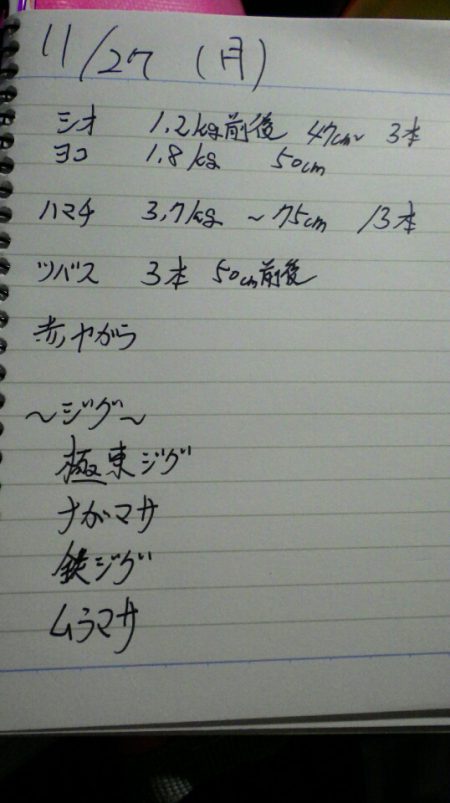 11/27 (月)
シオ 1.2kg前後 47cm~ 3本
ヨコ 1.8kg 50cm
ハマチ 3.7kg ~75cm 13本
ツバス 3本 50cm前後
赤ヤガラ
~ジグ~
極東ジグ
ナガマサ
鉄ジグ
ムラマサ